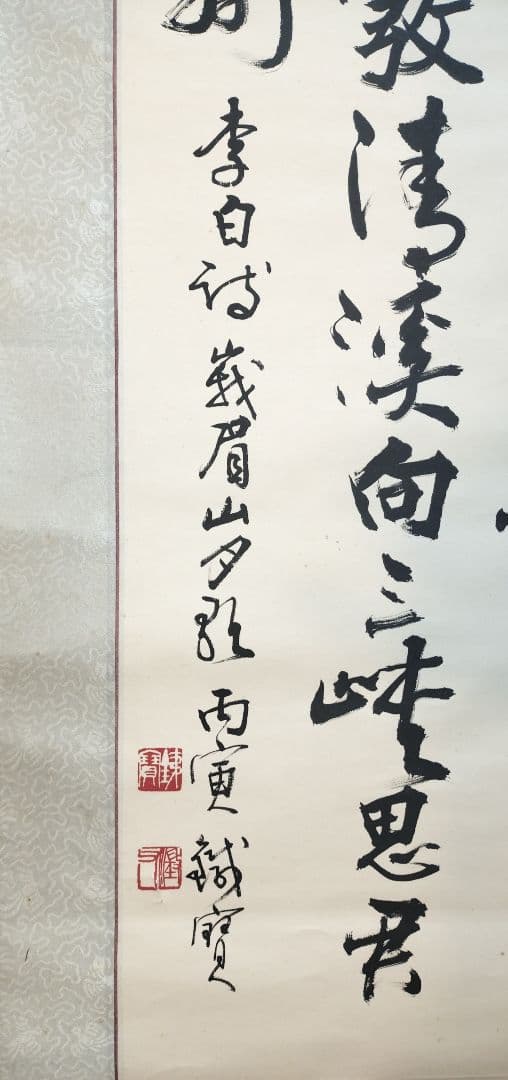 發清溪向三峽思君
州
李白詩峨眉山月歌 丙寅 鐵寶